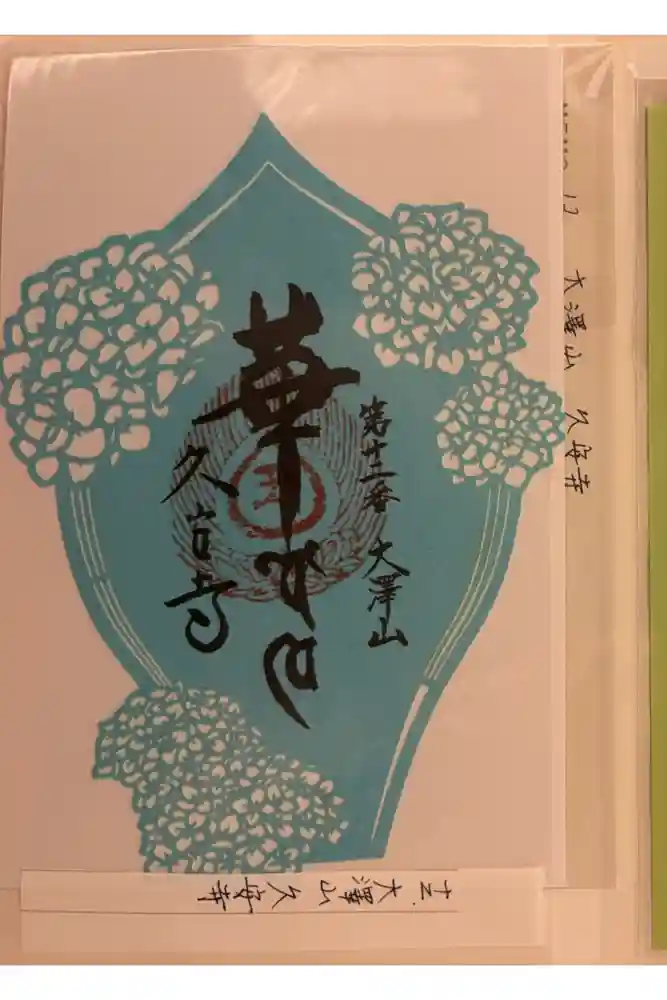 第十二番 大澤山
華
久安寺
12 大澤山 久安寺
十二 大澤山久安寺